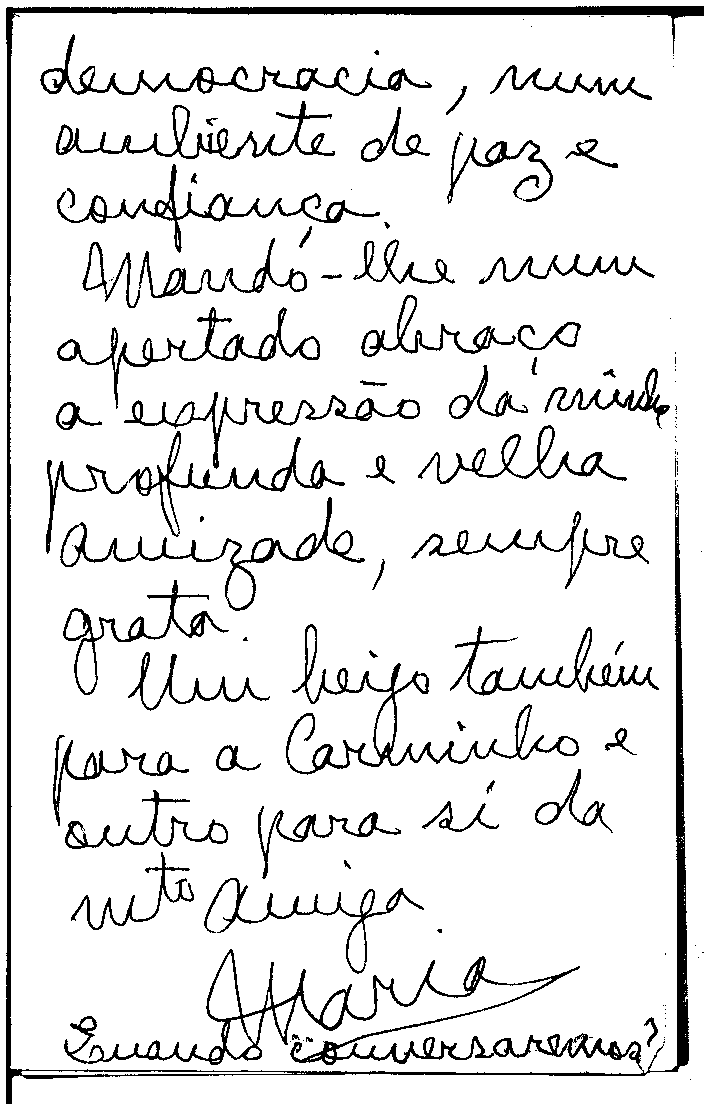 democracia, num
ambiente de paz e
confiança.
Mando-lhe num
apertado abraço
a expressão da minha
profunda e velha
amizade, sempre
grata.
Um beijo também
para a Carminho e
outro para sí da
mto amiga
Maria
Quando conversaremos?